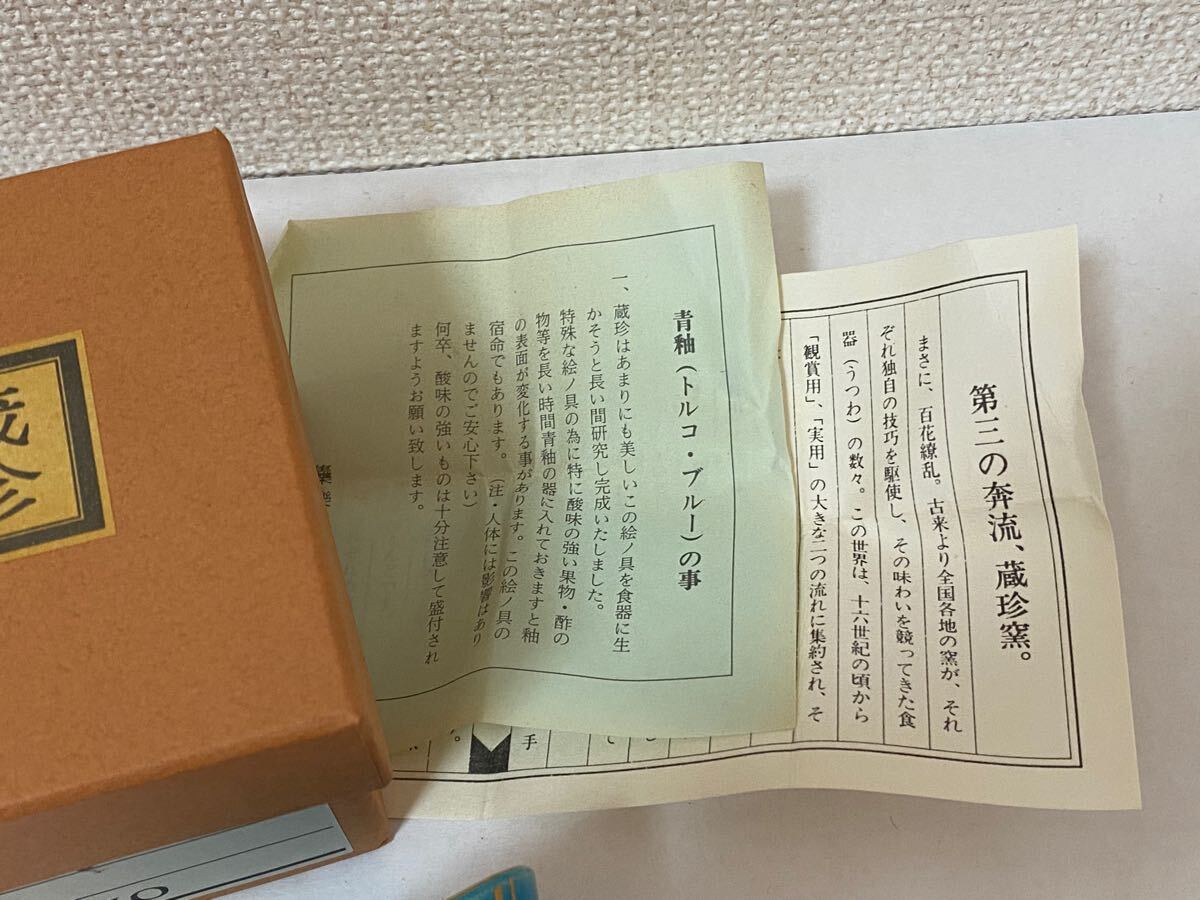 第三の奔流、蔵珍窯。
まさに、百花繚乱。古来より全国各地の窯が、それ
ぞれ独自の技巧を駆使し、その味わいを競ってきた食
器（うつわ）の数々。この世界は、十六世紀の頃から
「観賞用」、「実用」の大きな二つの流れに集約され、そ
て
手
青釉（トルコ・ブルー）の事
一、蔵珍はあまりにも美しいこの絵ノ具を食器に生
かそうと長い間研究し完成いたしました。
特殊な絵ノ具の為に特に酸味の強い果物・酢の
物等を長い時間青釉の器に入れておきますと釉
の表面が変化する事があります。この絵ノ具の
宿命でもあります。（注・人体には影響はあり
ませんのでご安心下さい）
何卒、酸味の強いものは十分注意して盛付され
ますようお願い致します。
蔵珍